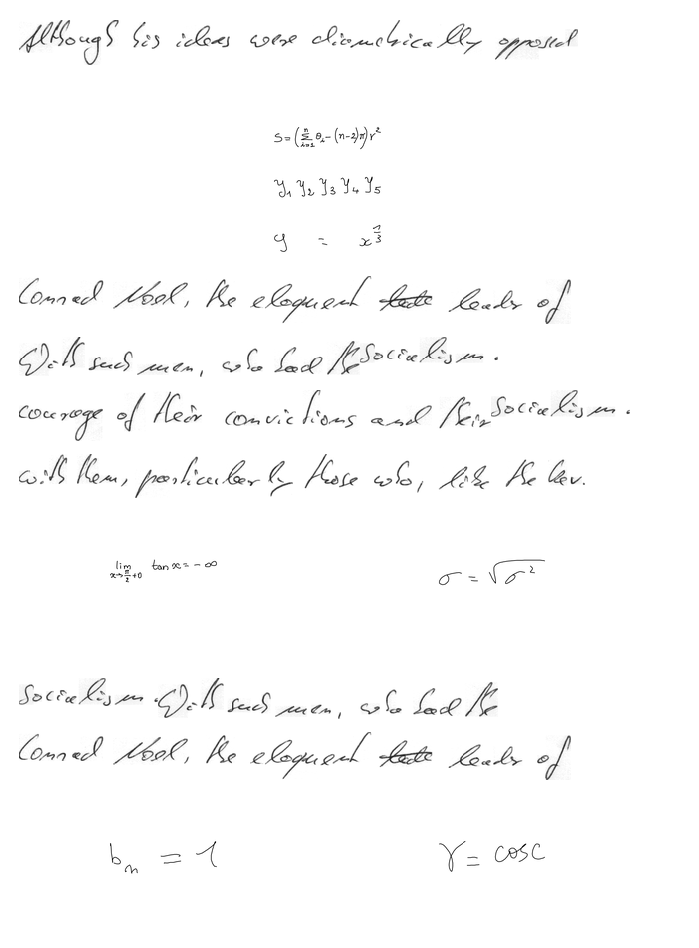 Although his ideas were diametrically opposed
S=(\sum_{i=1}^{n} θ_i-(n-2)π)r^2
y_1 y_2 y_3 y_4 y_5
y = x^{\frac{1}{3}}
Conrad Noel, the eloquent leader of
With such men, who had the Socialism.
courage of their convictions and their Socialism.
with them, particularly those who, like the Rev.
\lim_{x→\frac{π}{2}+0} tan x = -∞
σ = \sqrt{σ^2}
Socialism. With such men, who had the
Conrad Noel, the eloquent leader of
b_n = 1
γ = cos c